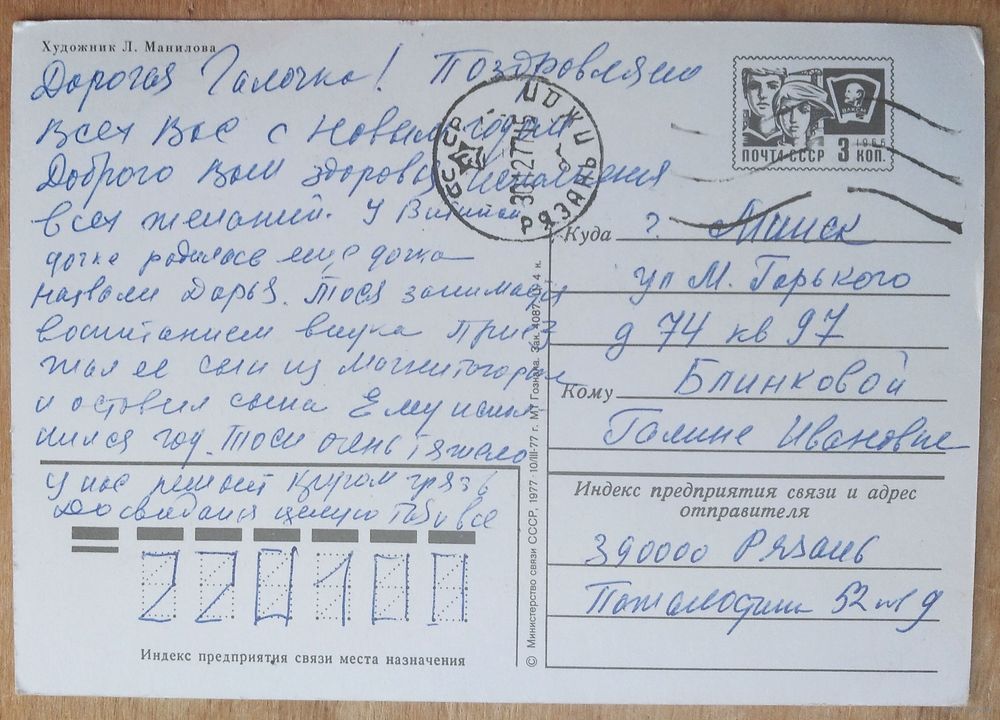 Художник Л. Манилова
Дорогая Галочка! Поздровляю
Всех Вас с Новым годом
Доброго Вам здоровья исполнения
всех желаний. У
дочке родилась еще дочка
назвали Дарья. Тося занимается
воспитанием внука Приез
жал ее сын из Магнитогорска
и оставил сына Ему испол
нился год. Тоси очень тяжело
У нас ремонт Кругом грязь
До свидания целую
220101
Индекс предприятия связи места назначения
© Министерство связи СССР, 1977 · 10/III-77 г. МТ Гознака. Зак. 4 к.
ПОЧТА СССР 3 КОП.
1966
ВЛКСМ
СССР РЯЗАНЬ
Куда г. Минск
ул М. Горького
д 74 кв 97
Кому Блинковой
Галине Ивановне
Индекс предприятия связи и адрес
отправителя
390000 Рязань
52 кв 9